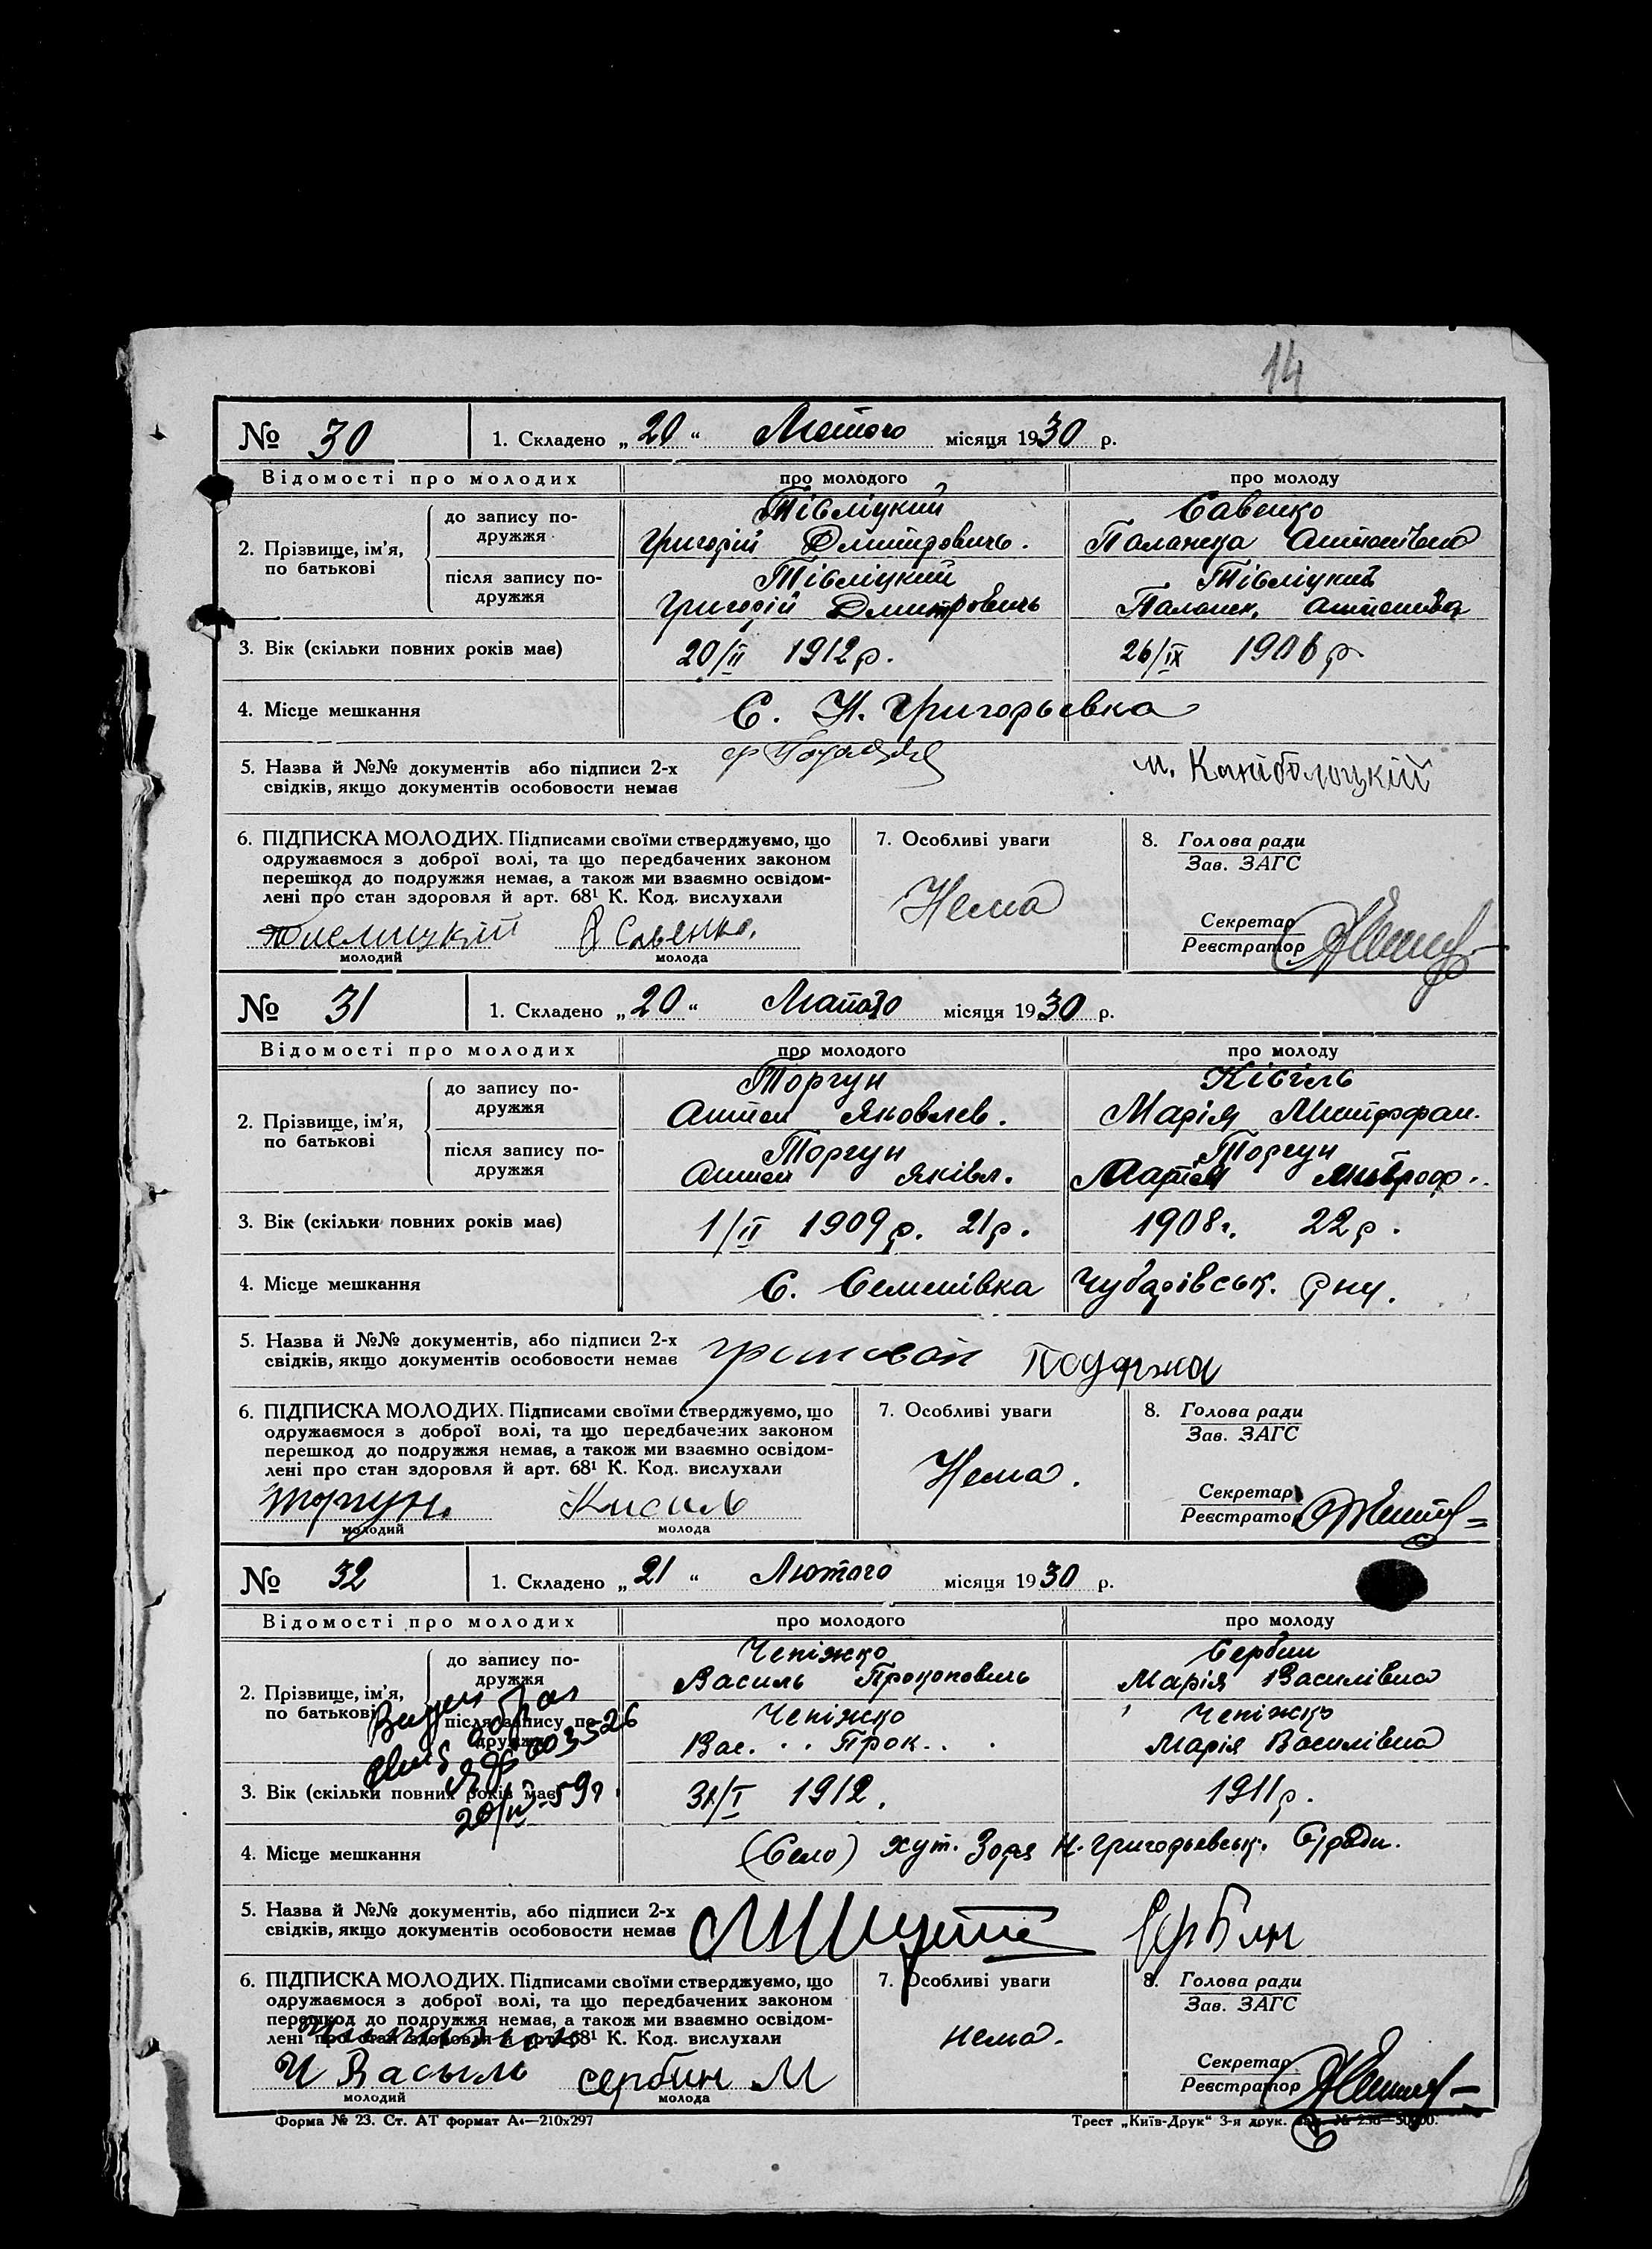 14
№ 30 1. Складено „20“ Лютого місяця 1930 р.
Відомості про молодих про молодого про молоду
2. Прізвище, ім'я, по батькові
до запису по-
дружжя
Тівліцкий
Григорій Дмитровичь.
Савенко
Паланжа
після запису по-
дружжя
Тівліцкий
Григорій Дмитровичь
Тівліцкий
3. Вік (скільки повних років має) 20/II 1912 р. 26/IX 1906 р.
4. Місце мешкання С. Н. Григорьевка
5. Назва й №№ документів або підписи 2-х
свідків, якщо документів особовости немає
м. Каніболоцкій
6. ПІДПИСКА МОЛОДИХ. Підписами своїми стверджуємо, що
одружаємося з доброї волі, та що передбачених законом
перешкод до подружжя немає, а також ми взаємно освідом-
лені про стан здоровля й арт. 68¹ К. Код. вислухали
молодий молода
7. Особливі уваги
Нема
8. Голова ради
Зав. ЗАГС
Секретар
Реєстратор
№ 31 1. Складено „20“ місяця 1930 р.
Відомості про молодих про молодого про молоду
2. Прізвище, ім'я,
по батькові
до запису по-
дружжя
Торгун
Антон Яковлев.
Кісіль
Марія Митрофан.
після запису по-
дружжя
Торгун
Антон Яківл.
Торгун
Марія Митроф.
3. Вік (скільки повних років має) 1/II 1909 р. 21 р. 1908 г. 22 р.
4. Місце мешкання С. Семенівка Чубарівськ. рну.
5. Назва й №№ документів, або підписи 2-х
свідків, якщо документів особовости немає
6. ПІДПИСКА МОЛОДИХ. Підписами своїми стверджуємо, що
одружаємося з доброї волі, та що передбачених законом
перешкод до подружжя немає, а також ми взаємно освідом-
лені про стан здоровля й арт. 68¹ К. Код. вислухали
Торгун. Кисиль
молодий молода
7. Особливі уваги
Нема.
8. Голова ради
Зав. ЗАГС
Секретар
Реєстратор
№ 32 1. Складено „21“ Лютого місяця 1930 р.
Відомості про молодих про молодого про молоду
2. Прізвище, ім'я,
по батькові
до запису по-
дружжя
Чепіжко
Василь Прокоповичь
Сербин
Марія Василівна
після запису по-
дружжя
Чепіжко
Вас. . . Прок. . .
Чепіжко
Марія Василівна
003526
20/IV-59 г.
3. Вік (скільки повних років має) 31/I 1912. 1911 р.
4. Місце мешкання (Село) хут. Зоря Н. Григорьевськ. С/ради.
5. Назва й №№ документів, або підписи 2-х
свідків, якщо документів особовости немає
Сербин
6. ПІДПИСКА МОЛОДИХ. Підписами своїми стверджуємо, що
одружаємося з доброї волі, та що передбачених законом
перешкод до подружжя немає, а також ми взаємно освідом-
лені про стан здоровля й арт. 68¹ К. Код. вислухали
Ч Василь Сербин М
молодий молода
7. Особливі уваги
нема.
8. Голова ради
Зав. ЗАГС
Секретар
Реєстратор
Форма № 23. Ст. АТ формат А₄—210х297 Трест „Київ-Друк“ 3-я друк.